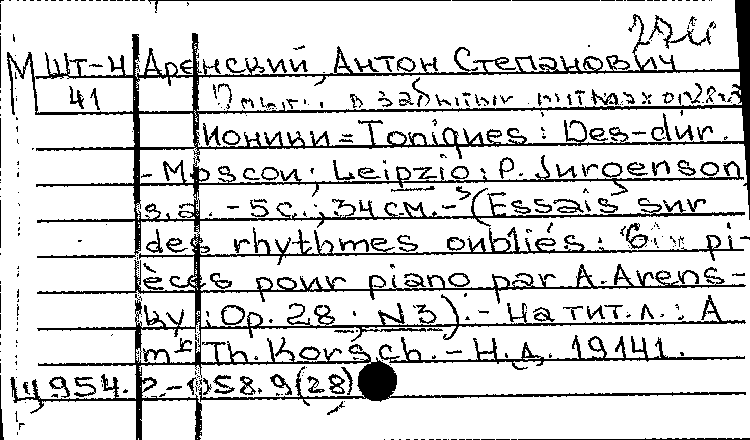 М ШТ-Н Аренский, Антон Степанович
41 Опыты в забытых ритмах
Ионики = Ioniques : Des-dur.
- Moscou ; Leipzig : P. Jurgenson,
s.a. - 5 с. ; 34 см. - (Essais sur
des rhythmes oubliés : Six pi-
èces pour piano par A. Arens-
ky ; Op. 28 ; N3). - На тит. л. : A
mr Th. Korsch. - Н.д. 19141.
Щ 954.2-058.9(28)